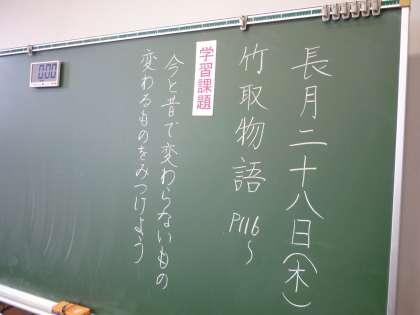 長月二十八日(木)
竹取物語 P116～
学習課題
今と昔で変わらないもの
変わるものをみつけよう
0:00